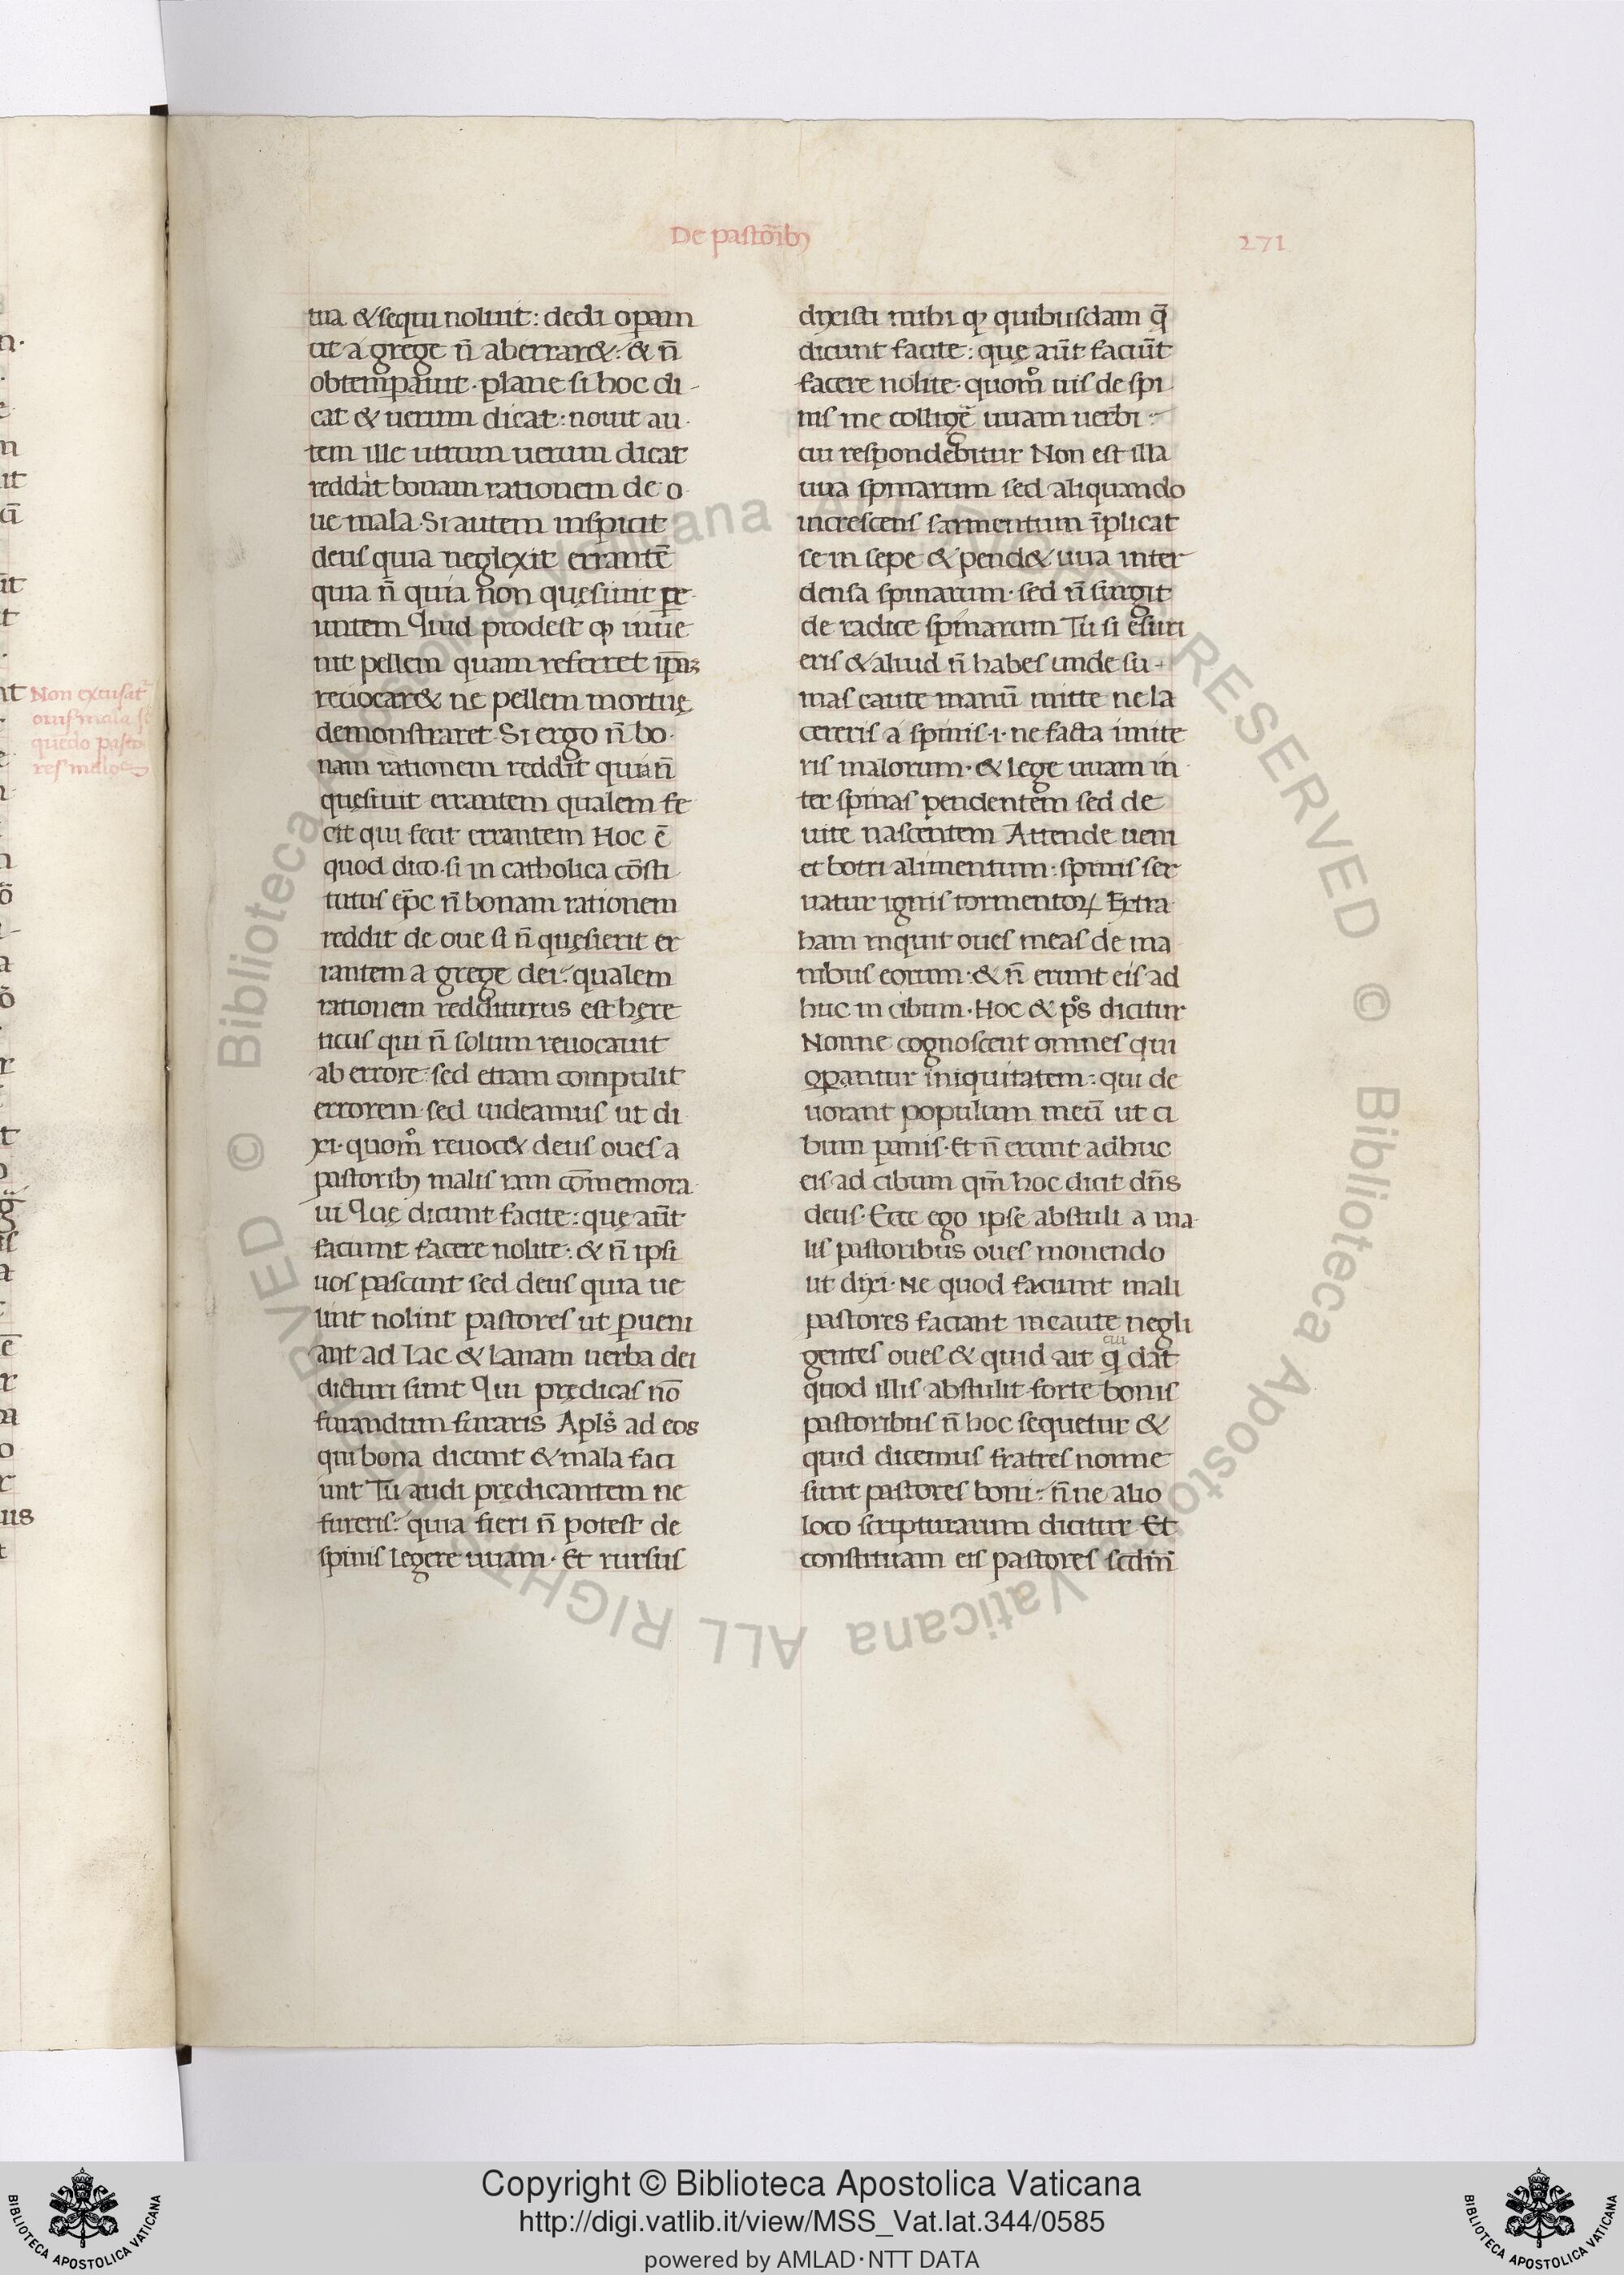 De pastōibꝫ
271
tua & sequi noluit: dedi oꝑam
ut a grege n̄ aberrar&: & n̄
obtemꝑauit · plane si hoc di-
cat & uerum dicat: nouit au
tem ille utrum uerum dicat
reddat bonam rationem de o
ue mala · Si autem inspicit
deus quia neglexit errantē
quia n̄ quia non quęsiuit ꝑe
untem Quid prodest ꝙ inue
nit pellem quam referret
reuocar& ne pellem mortuę
demonstraret · Si ergo n̄ bo
nam rationem reddit quia n̄
quęsiuit errantem qualem fe
cit qui fecit errantem Hoc ē
quod dico · si in catholica cōsti
tutus ep̄c n̄ bonam rationem
reddit de oue si n̄ quęsierit er
rantem a grege dei: qualem
rationem redditurus est here
ticus qui n̄ solum reuocauit
ab errore: sed etiam compulit
errorem · sed uideamus ut di
xi · quom̊ reuoc& deus oues a
pastoribꝫ malis iam cōmemora
ui Quę dicunt facite: quę aūt
faciunt facere nolite: & n̄ ipsi
uos pascunt sed deus quia ue
lint nolint pastores ut ꝑueni
ant ad lac & lanam uerba dei
dicturi sunt Qui prędicas nō
furandum furaris Apl̄s ad eos
qui bona dicunt & mala faci
unt Tu audi prędicantem ne
fureris: quia fieri n̄ potest de
spinis legere uuam · Et rursus
dixisti mihi ꝙ quibusdam q̄
dicunt facite: quę aūt faciūt
facere nolite · quom̊ uis de spi
nis me colligē uuam uerbi
cui respondebitur Non est illa
uua spinarum sed aliquando
increscens sarmentum īplicat
se in sepe & pend& uua inter
densa spinarum · sed n̄ surgit
de radice spinarum Tu si esuri
eris & aliud n̄ habes unde su-
mas caute manū mitte ne la
cereris a spinis · i · ne facta imite
ris malorum · & lege uuam in
ter spinas pendentem sed de
uite nascentem Attende ueni
et botri alimentum: spinis ser
uatur ignis tormentoꝝ Extra
ham inquit oues meas de ma
nibus eorum · & n̄ erunt eis ad
huc in cibum · Hoc & p̊s dicitur
Nonne cognoscent omnes qui
oꝑantur iniquitatem: qui de
uorant populum meū ut ci
bum panis · Et n̄ erunt adhuc
eis ad cibum qm̄ hoc dicit dn̄s
deus · Ecce ego ipse abstuli a ma
lis pastoribus oues monendo
ut dixi · Ne quod faciunt mali
pastores faciant incaute negli
gentes oues & quid ait q̄ cui dat
quod illis abstulit forte bonis
pastoribus n̄ hoc sequetur &
quid dicemus fratres nonne
sunt pastores boni: n̄ne alio
loco scripturarum dicitur Et
constituam eis pastores scd̄m
Non excusat̄
ouis mala
quedo pasto
res malo
Copyright © Biblioteca Apostolica Vaticana
http://digi.vatlib.it/view/MSS_Vat.lat.344/0585
powered by AMLAD·NTT DATA
BIBLIOTECA APOSTOLICA VATICANA
BIBLIOTECA APOSTOLICA VATICANA
© Biblioteca Apostolica Vaticana ALL RIGHTS RESERVED © Biblioteca Apostolica Vaticana ALL RIGHTS RESERVED